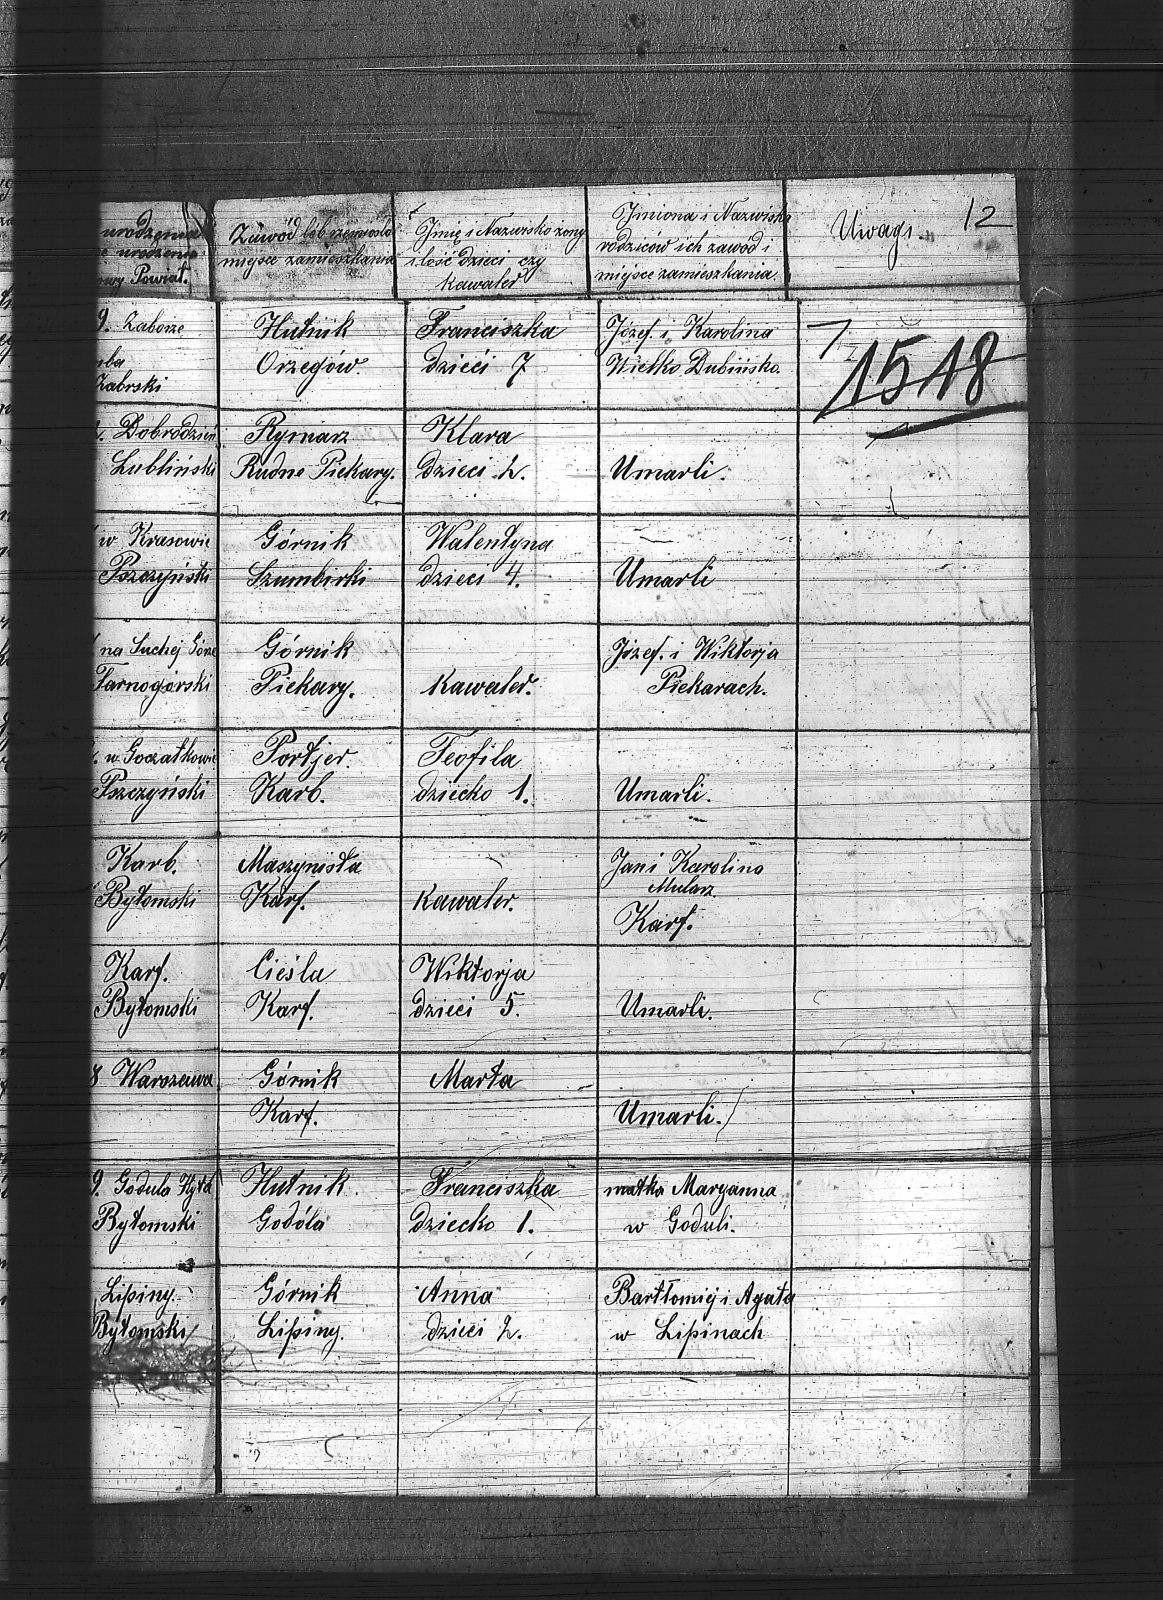 urodzenia
urodzenia
Powiat.
Zawód lub rzemiosło
miejsce zamieszkania
Imię i Nazwisko żony
ilość dzieci czy
kawaler
Imiona i Nazwisko
rodziców ich zawód i
miejsce zamieszkania.
Uwagi.
12
9. Zaborze
Zabrski
Hutnik
Orzegów.
Franciszka
dzieci 7
Józef. i Karolina
Wielko Dubińsko.
1518
Dobrodzień
Lubliński
Rymarz
Rudne Piekary.
Klara
dzieci 2.
Umarli.
w Krasowie
Pszczyński
Górnik
Szumbirki
Walentyna
dzieci 4.
Umarli
na Suchej Górze
Tarnogórski
Górnik
Piekary.
Kawaler.
Józef. i Wiktorja
Piekarach.
w Goczałkowie
Pszczyński
Portjer.
Karb.
Teofila
dziecko 1.
Umarli.
Karb.
Bytomski
Maszynista
Karf.
Kawaler.
Jan i Karolina
Mularz
Karf.
Karf.
Bytomski
Cieśla
Karf.
Wiktorja
dzieci 5.
Umarli.
8 Warszawa
Górnik
Karf.
Marta
Umarli.
9. Godula Hyta
Bytomski
Hutnik.
Godóla
Franciszka
dziecko 1.
matka Maryanna
w Goduli.
Lipiny.
Bytomski
Górnik
Lipiny.
Anna
dzieci 2.
Bartłomiej i Agata
w Lipinach